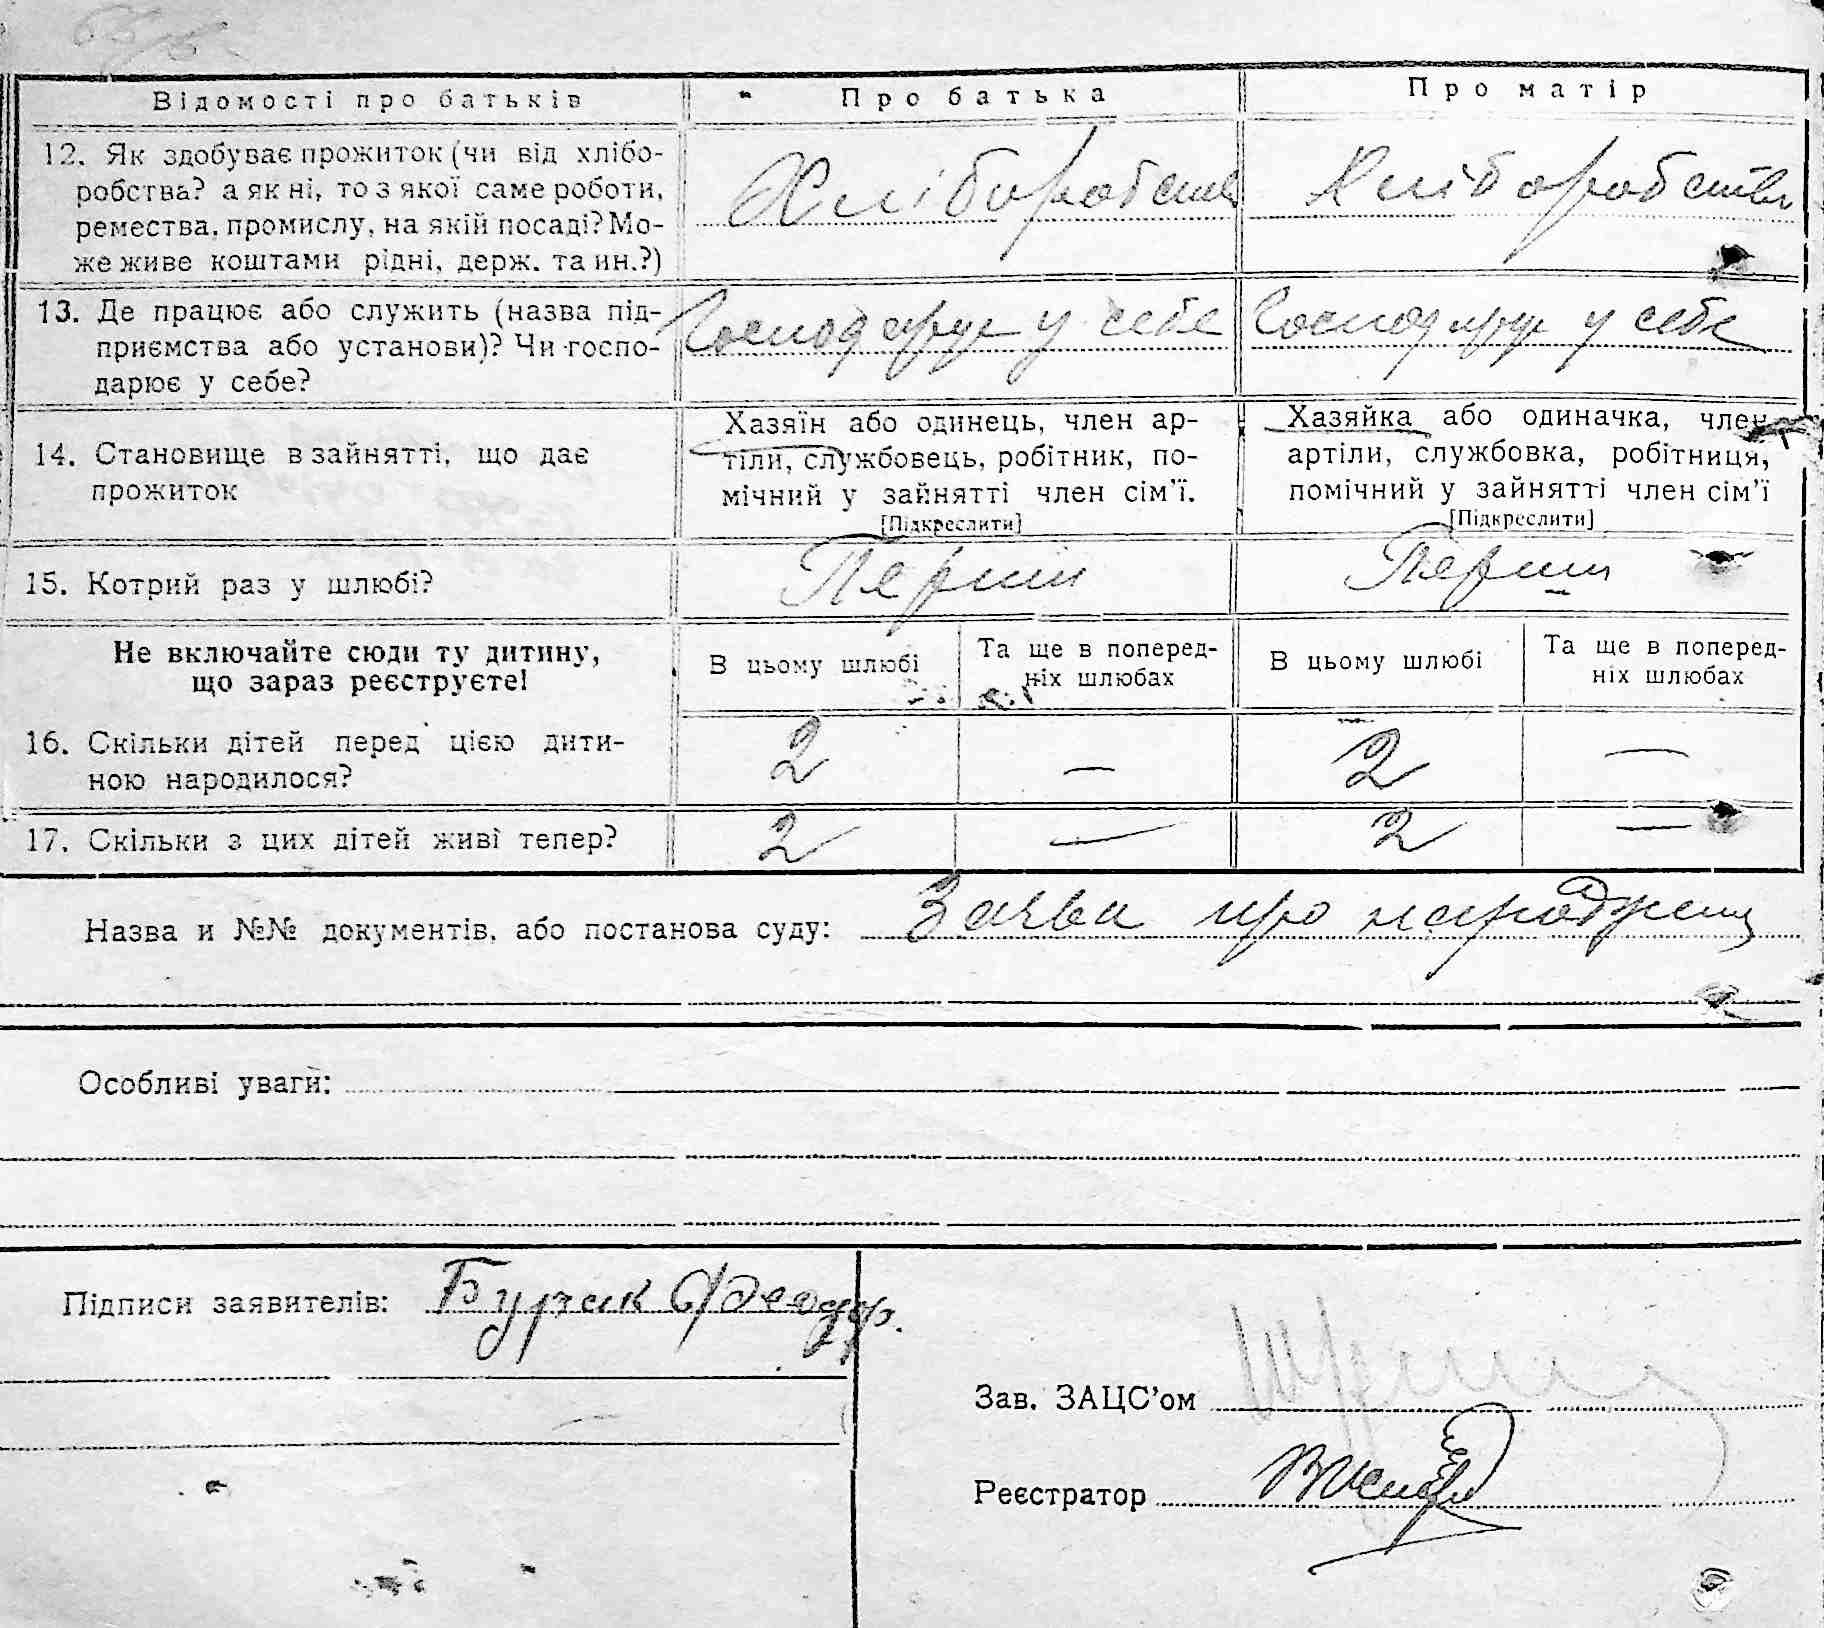 Відомості про батьків Про батька Про матір
12. Як здобуває прожиток (чи від хлібо-
робства? а як ні, то з якої саме роботи,
ремества, промислу, на якій посаді? Мо-
же живе коштами рідні, держ. та ин.?)
Хліборобств Хліборобства
13. Де працює або служить (назва під-
приємства або установи)? Чи госпо-
дарює у себе?
Господарує у себе Господарує у себе
14. Становище в зайнятті, що дає
прожиток
Хазяїн або одинець, член ар-
тіли, службовець, робітник, по-
мічний у зайнятті член сім'ї.
[Підкреслити]
Хазяйка або одиначка, член
артіли, службовка, робітниця,
помічний у зайнятті член сім'ї
[Підкреслити]
15. Котрий раз у шлюбі? Перший Перший
Не включайте сюди ту дитину,
що зараз реєструєте!
В цьому шлюбі
Та ще в поперед-
ніх шлюбах
В цьому шлюбі
Та ще в поперед-
ніх шлюбах
16. Скільки дітей перед цією дити-
ною народилося?
2 — 2 —
17. Скільки з цих дітей живі тепер? 2 — 2 —
Назва и №№ документів, або постанова суду: Заява про народжения
Особливі уваги:
Підписи заявителів: Бурчак Феодор.
Зав. ЗАЦС'ом
Реєстратор